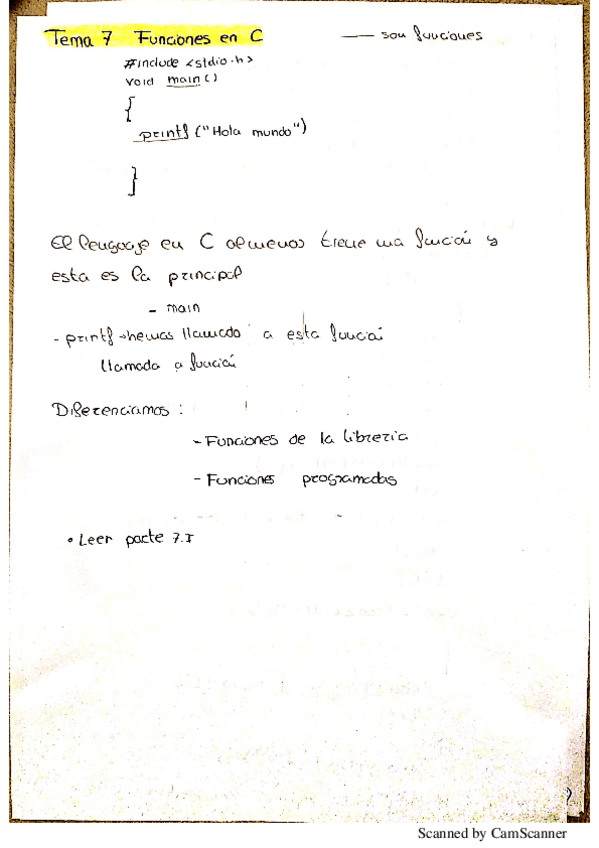 Tema 7 Funciones en C — son funciones
#include <stdio.h>
void main()
{
printf ("Hola mundo")
}
El lenguaje en C almenos tiene una función y
esta es la principal
- main
- printf → hemos llamado a esta función
llamada a función
Diferenciamos :
- Funciones de la libreria
- Funciones programadas
• Leer parte 7.I
Scanned by CamScanner